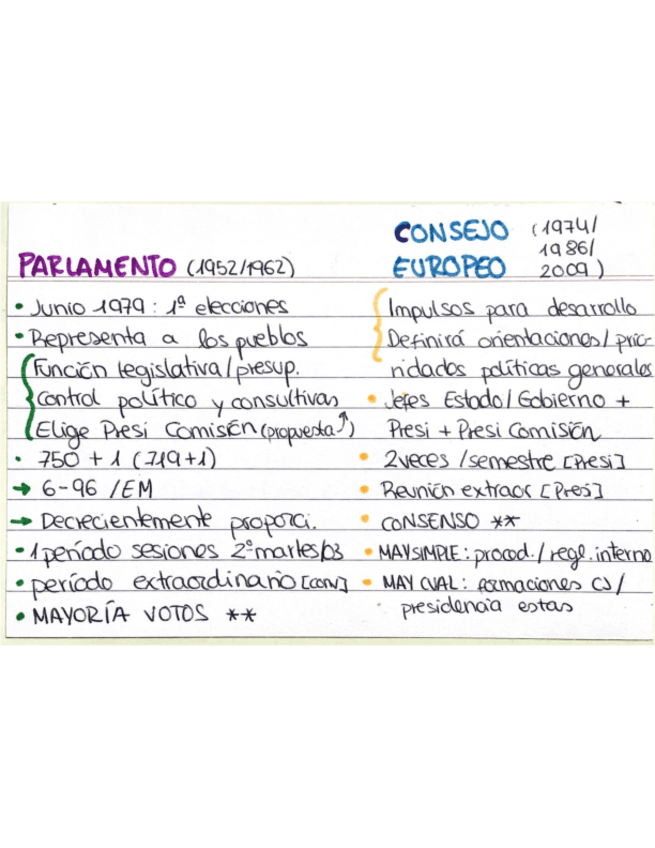 PARLAMENTO (1952/1962)
• Junio 1979: 1ª elecciones
• Representa a los pueblos
Función legislativa/presup.
Control político y consultivas
Elige Presi Comisión (propuesta↑)
• 750 + 1 (719+1)
→ 6-96 /EM
→ Decrecientemente proporci.
• 1 período sesiones 2º martes/03
• período extraordinario [conv]
• MAYORÍA VOTOS **
CONSEJO (1974/
1986/
EUROPEO 2009)
Impulsos para desarrollo
Definirá orientaciones/prio-
ridades políticas generales
• Jefes Estado/Gobierno +
Presi + Presi Comisión
• 2 veces /semestre [Presi]
• Reunión extraor [Pres]
• CONSENSO **
• MAY SIMPLE: proced./regl. interno
• MAY CUAL: formaciones CJ/
presidencia estas